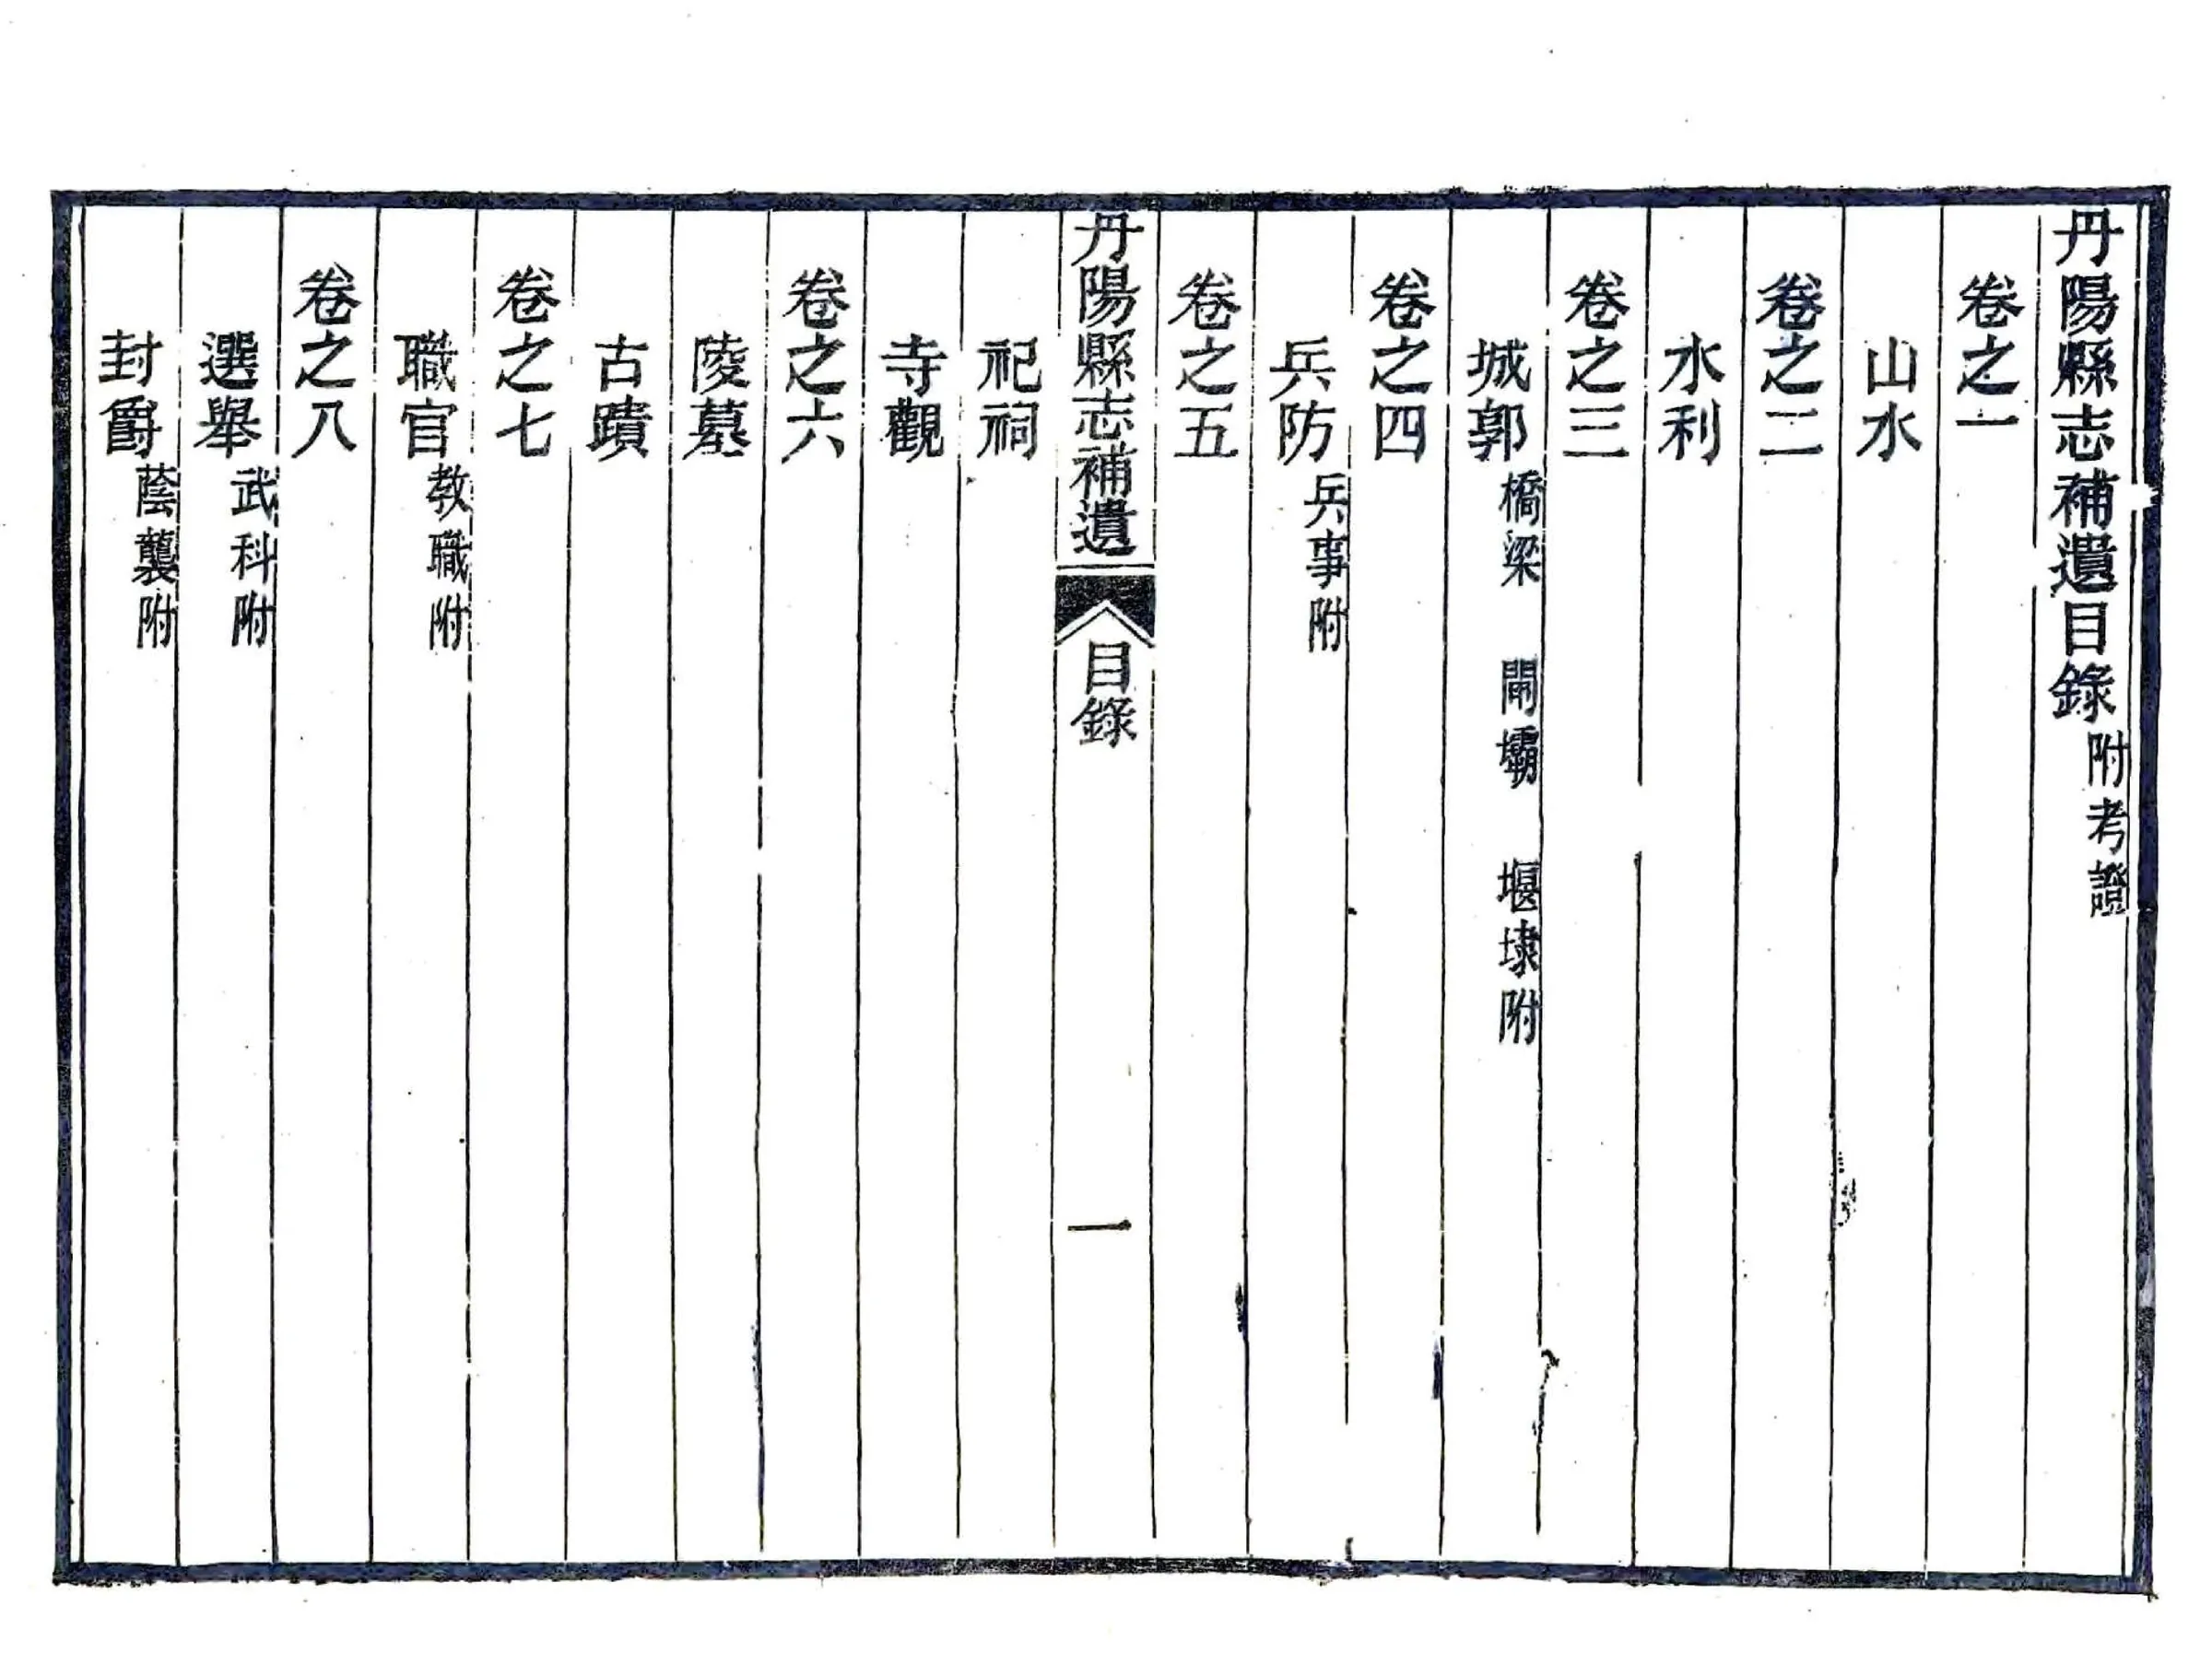 丹陽縣志補遺目錄附考證
卷之一
山水
卷之二
水利
卷之三
城郭橋梁 閘壩 堰埭附
卷之四
兵防兵事附
卷之五
丹陽縣志補遺 目錄 一
祀祠
寺觀
卷之六
陵墓
古蹟
卷之七
職官教職附
卷之八
選舉武科附
封爵蔭襲附